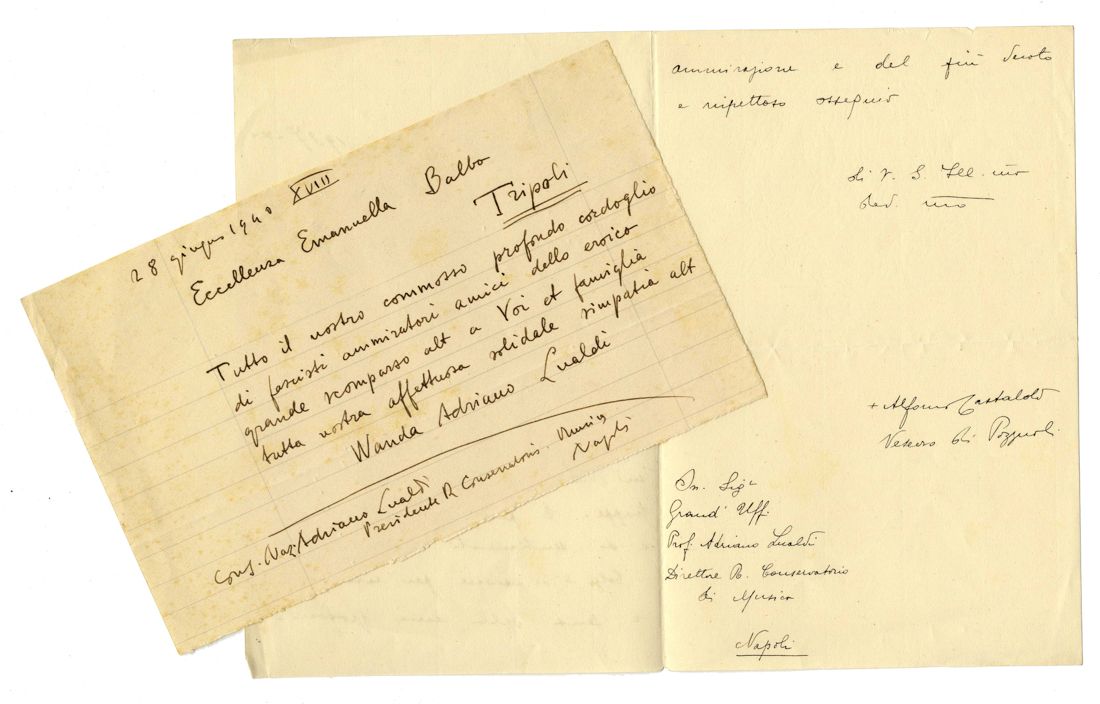 28 giugno 1940 XVIII
Eccellenza Emanuella Balbo
Tripoli
Tutto il nostro commosso profondo cordoglio
di fascisti ammiratori amici dello eroico
grande scomparso alt a Voi et famiglia
tutta nostra affettuosa solidale simpatia alt
Wanda Adriano Lualdi
Cons. Naz Adriano Lualdi
Presidente R. Conservatorio Musica
Napoli
ammirazione e del più devoto
e rispettoso ossequio
di V. S. Ill.mo
dev. mo
+ Alfonso Castaldo
Vescovo di Pozzuoli
Ill. Sig.
Grand' Uff.
Prof. Adriano Lualdi
Direttore R. Conservatorio
di Musica
Napoli